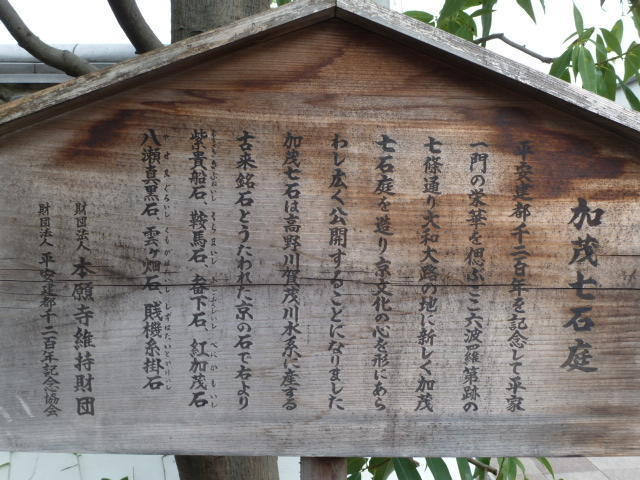 加茂七石庭
平安建都千二百年を記念して平家
一門の栄華を偲ぶここ六波羅第跡の
七條通り大和大路の地に新しく加茂
七石庭を造り京文化の心を形にあら
わし広く公開することになりました
加茂七石は高野川賀茂川水系に産する
古来銘石とうたわれた京の石で右より
紫貴船石 鞍馬石 畚下石 紅加茂石
八瀬真黒石 雲ヶ畑石 賎機糸掛石
財団法人 本願寺維持財団
財団法人 平安建都千二百年記念協会